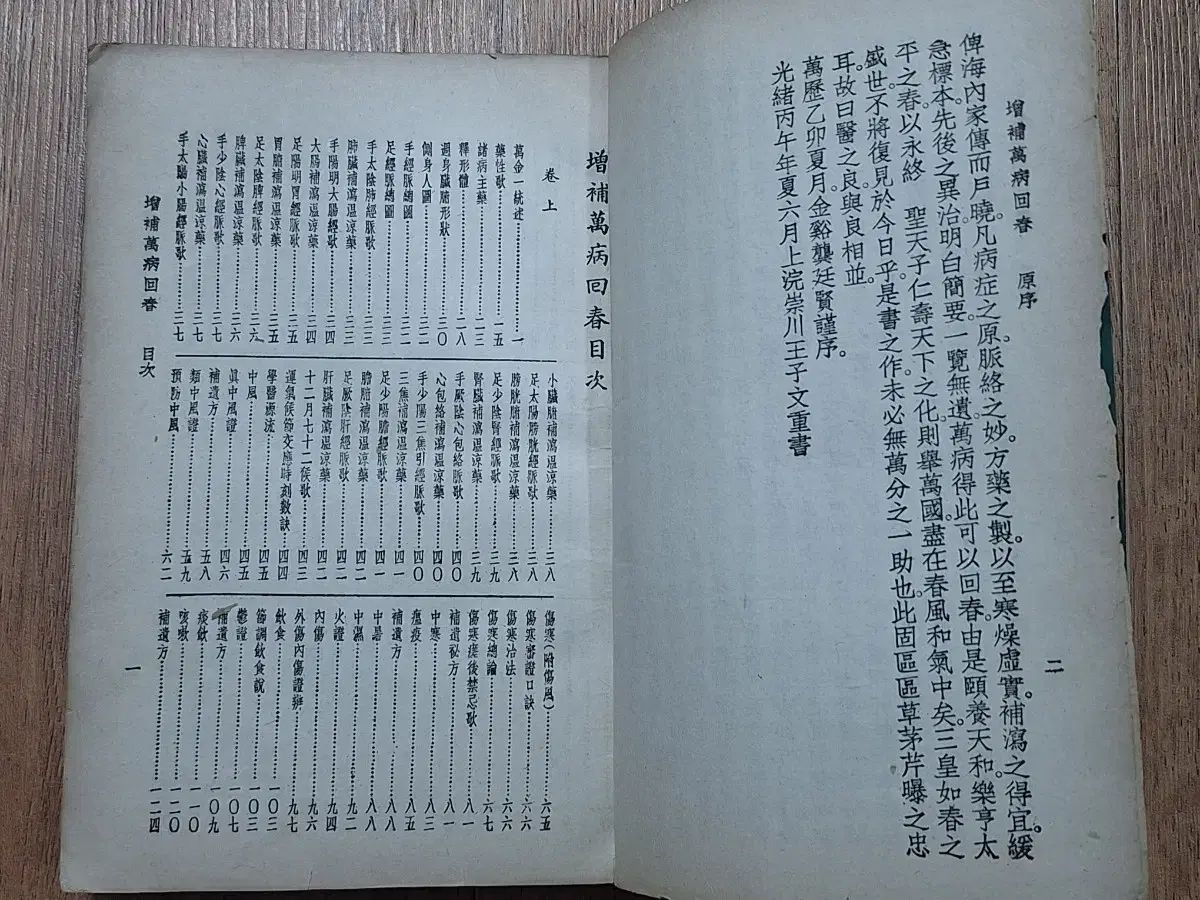 增補萬病回春　原序
二
俾海內家傳而戶曉。凡病症之原。脈絡之妙。方藥之製。以至寒燥虛實。補瀉之得宜。緩
急標本。先後之異治。明白簡要。一覽無遺。萬病得此可以回春。由是頤養天和。樂亨太
平之春以永終　聖天子仁壽天下之化。則舉萬國。盡在春風和氣中矣。三皇如春之
盛世。不將復見於今日乎。是書之作。未必無萬分之一助也。此固區區草茅芹曝之忠
耳。故曰醫之良。與良相並。
萬歷乙卯夏月。金谿龔廷賢謹序。
光緒丙午年夏六月上浣崇川王子文重書
增補萬病回春目次
卷上
萬金一統述……一
藥性歌……一五
諸病主藥……二三
釋形體……二八
週身臟腑形狀……三〇
側身人圖……三二
手經脈總圖……三二
足經脈總圖……三二
手太陰肺經脈歌……三三
肺臟補瀉溫涼藥……三三
手陽明大腸經脈歌……三四
大腸補瀉溫涼藥……三四
足陽明胃經脈歌……三五
胃腑補瀉溫涼藥……三五
足太陰脾經脈歌……三六
脾臟補瀉溫涼藥……三六
手少陰心經脈歌……三七
心臟補瀉溫涼藥……三七
手太陽小腸經脈歌……三七
小臟腑補瀉溫涼藥……三八
足太陽膀胱經脈歌……三八
膀胱腑補瀉溫涼藥……三八
足少陰腎經脈歌……三九
腎臟補瀉溫涼藥……三九
手厥陰心包絡脈歌……四〇
心包絡補瀉溫涼藥……四〇
手少陽三焦引經脈歌……四〇
三焦補瀉溫涼藥……四一
足少陽膽經脈歌……四一
膽腑補瀉溫涼藥……四二
足厥陰肝經脈歌……四二
肝臟補瀉溫涼藥……四二
十二月七十二候歌……四三
運氣候節交應時刻數訣……四四
學醫源流……四五
中風……四五
眞中風證……四六
補遺方……五八
類中風證……五九
預防中風……六二
傷寒(附傷風)……六五
傷寒審證口訣……六六
傷寒治法……六六
傷寒總論……六七
傷寒瘥後禁忌歌……八一
補遺祕方……八一
中寒……八三
瘟疫……八五
補遺方……八八
中暑……八八
中濕……九二
火證……九四
內傷……九六
外傷內傷證辨……九七
飲食……一〇三
節調飲食說……一〇三
鬱證……一〇七
補遺方……一〇九
痰飲……一一〇
咳嗽……一二〇
補遺方……一二四
增補萬病回春　目次
一